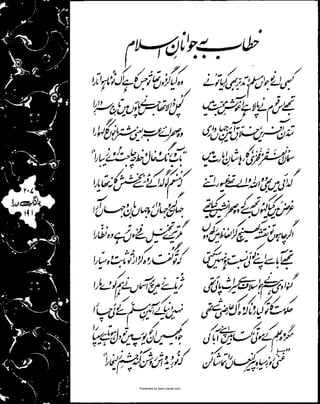 خطاب بہ جوانانِ اسلام
کبھی اے نوجواں مسلم! تدبّر بھی کیا تُو نے
وہ کیا گردُوں تھا تُو جس کا ہے اک ٹُوٹا ہوا تارا
تجھے اس قوم نے پالا ہے آغوشِ محبّت میں
کُچل ڈالا تھا جس نے پاؤں میں تاجِ سرِ دارا
تمدّن آفریں، خلاّقِ آئینِ جہاں داری
وہ صحرائے عرب یعنی شتربانوں کا گہوارا
سماں 'الفُقْرَ و فَخرْی' کا رہا شانِ امارت میں
"بآب و رنگ و خال و خط چہ حاجت رُوے زیبا را"
گدائی میں بھی وہ اللہ والے تھے غیور اتنے
کہ مُنعم کو گدا کے ڈر سے بخشش کا نہ تھا یارا
غرض مَیں کیا کہُوں تجھ سے کہ وہ صحرا نشیں کیا تھے
جہاں گیر و جہاں دار و جہاں بان و جہاں آرا
اگر چاہوں تو نقشہ کھینچ کر الفاظ میں رکھ دوں
مگر تیرے تخیّل سے فزوں تر ہے وہ نظّارا
تجھے آبا سے اپنے کوئی نسبت ہو نہیں سکتی
کہ تُو گُفتار وہ کردار، تُو ثابت وہ سیّارا
گنوا دی ہم نے جو اسلاف سے میراث پائی تھی
ثُریّا سے زمیں پر آسماں نے ہم کو دے مارا
حکومت کا تو کیا رونا کہ وہ اک عارضی شے تھی
نہیں دنیا کے آئینِ مسلَّم سے کوئی چارا
مگر وہ عِلم کے موتی، کتابیں اپنے آبا کی
جو دیکھیں ان کو یورپ میں تو دل ہوتا ہے سیپارا
"غنیؔ! روزِ سیاہِ پیرِ کنعاں را تماشا کُن
کہ نُورِ دیدہ اش روشن کُند چشمِ زلیخا را"
بانگ درا
Presented by www.ziaraat.com